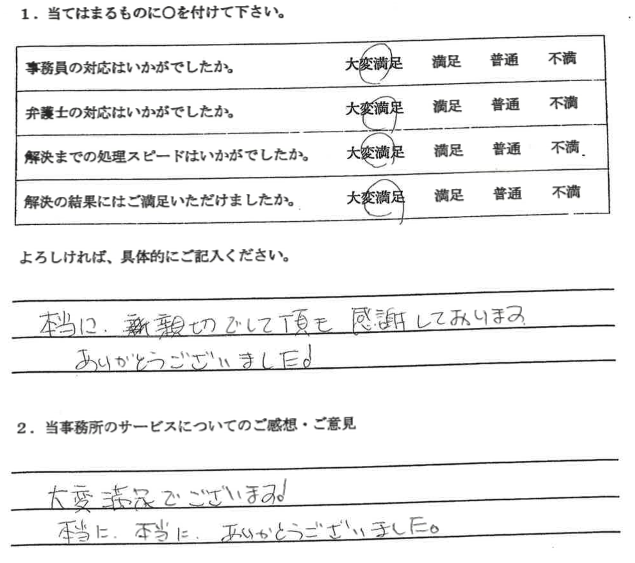 1．当てはまるものに〇を付けて下さい。
事務員の対応はいかがでしたか。 大変満足 満足 普通 不満
弁護士の対応はいかがでしたか。 大変満足 満足 普通 不満
解決までの処理スピードはいかがでしたか。 大変満足 満足 普通 不満
解決の結果にはご満足いただけましたか。 大変満足 満足 普通 不満
よろしければ、具体的にご記入ください。
本当に、親切でして頂も 感謝しております
ありがとうございました!
2．当事務所のサービスについてのご感想・ご意見
大変満足でございます!
本当に、本当に、ありがとうございました。